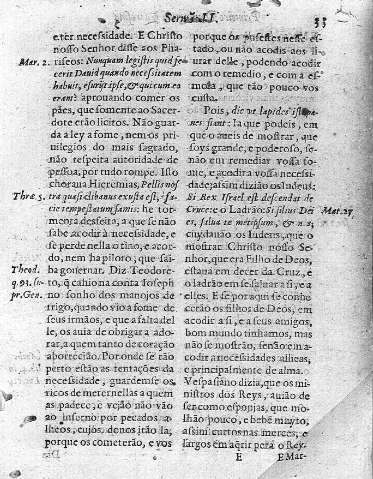 Sermão II.
33
e ter necessidade. E Christo
nosso Senhor disse aos Pha
riseos: Nunquam legistis quid fe
cerit Dauid quando necessitatem
habuit, esurijt ipse, & qui cum eo
erant? aprouando comer os
pães, que somente ao Sacer-
dote erão licitos. Não guar
da a ley a fome, nem os pri
uilegios do mais sagrado,
não respeita autoridade de
pessoa, por tudo rompe. Isso
choraua Hieremias, Pellis nos
tra quasi clibanus exusta est, à fa
cie tempestatum famis. He tor-
menta desfeita, a que se não
sabe acodir à necessidade, e
se perde nella o tino, e acor-
do, nem ha piloto, que sai-
ba gouernar. Diz Teodore-
to, q̃ cahio na conta Ioseph
no sonho dos manojos de
trigo, quando vio a fome de
seus irmãos, e que a falta del
le, os auia de obrigar a ado-
rar, a quem tanto de coração
aborrecião. Por onde se tão
perto estão as tentações da
necessidade, guardemse os
vicos de meternellas a quem
as padece, e vejão não vão
ao inferno por pecados a-
lheos, cujos, donos irão la,
porque os cometerão, e vos
Mar. 2.
Thre. 5.
Theod.
q. 91. su-
pr. Gen.
porque os pusestes nesse es-
tado, ou não acodis aos li-
urar delle, podendo, acodir
com o remedio, e com a es-
mola, que tão pouco vos
custa.
Pois, dic vt lapides isti pa-
nes fiant: Ia que podeis, em
que o aueis de mostrar, que
soys grande, e poderoso, se-
não em remediar vossa fo-
me, e acodir a vossa necessi-
dade; assim dizião os Iudeus:
Si Rex Israel est descendat de
Cruce: e o Ladrão: Si filius Dei
es, salua te metipsum, & nos;
cuydauão os Iudeus, que o
mostrar Christo nosso Se-
nhor, que era Filho de Deos,
estaua em decer da Cruz, e
o ladrão em se saluar a si, e a
elles. E se por aqui se conhe
cerão os filhos de Deos, em
acodir a si, e a seus amigos,
bom mundo tinhamos, mas
não se mostrão, senão em a-
codir a necessidades alheas,
e principalmente de alma.
Vespasiano dizia, que os mi-
nistros dos Reys, auião de
ser como esponjas, que mo-
lhão pouco, e bebẽ muyto,
assim curtos nas merces, e
largos em aqrir pera o Rey.
Mar. 27.
E
E Mar-